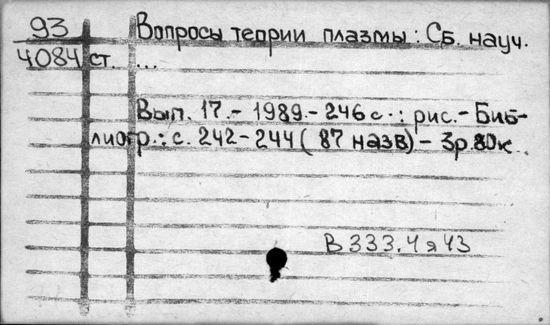 93 Вопросы теории плазмы: Сб. науч.
4084 ст. ...
Вып. 17.- 1989.- 246 с.: рис.- Биб-
лиогр.: с. 242-244 (87 назв) - 3р.80к
В 333.4я43